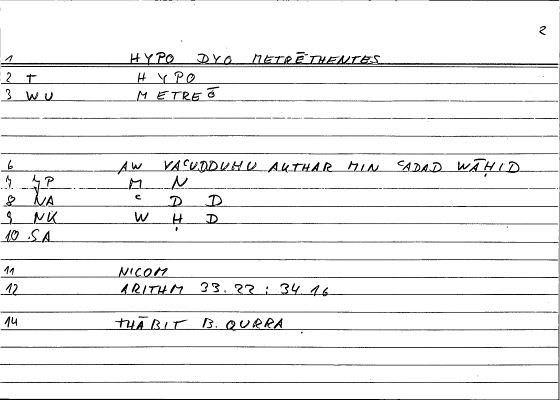 2
1 HYPO DYO METRĒTHENTES
2 T HYPO
3 WU METREŌ
6 AW YAʿUDDUHU AKTHAR MIN ʿADAD WĀḤID
7 YP M N
8 NA ʿ D D
9 NK W Ḥ D
10 SA
11 NICOM
12 ARITHM 33.22 : 34.16
14 THĀBIT B. QURRA